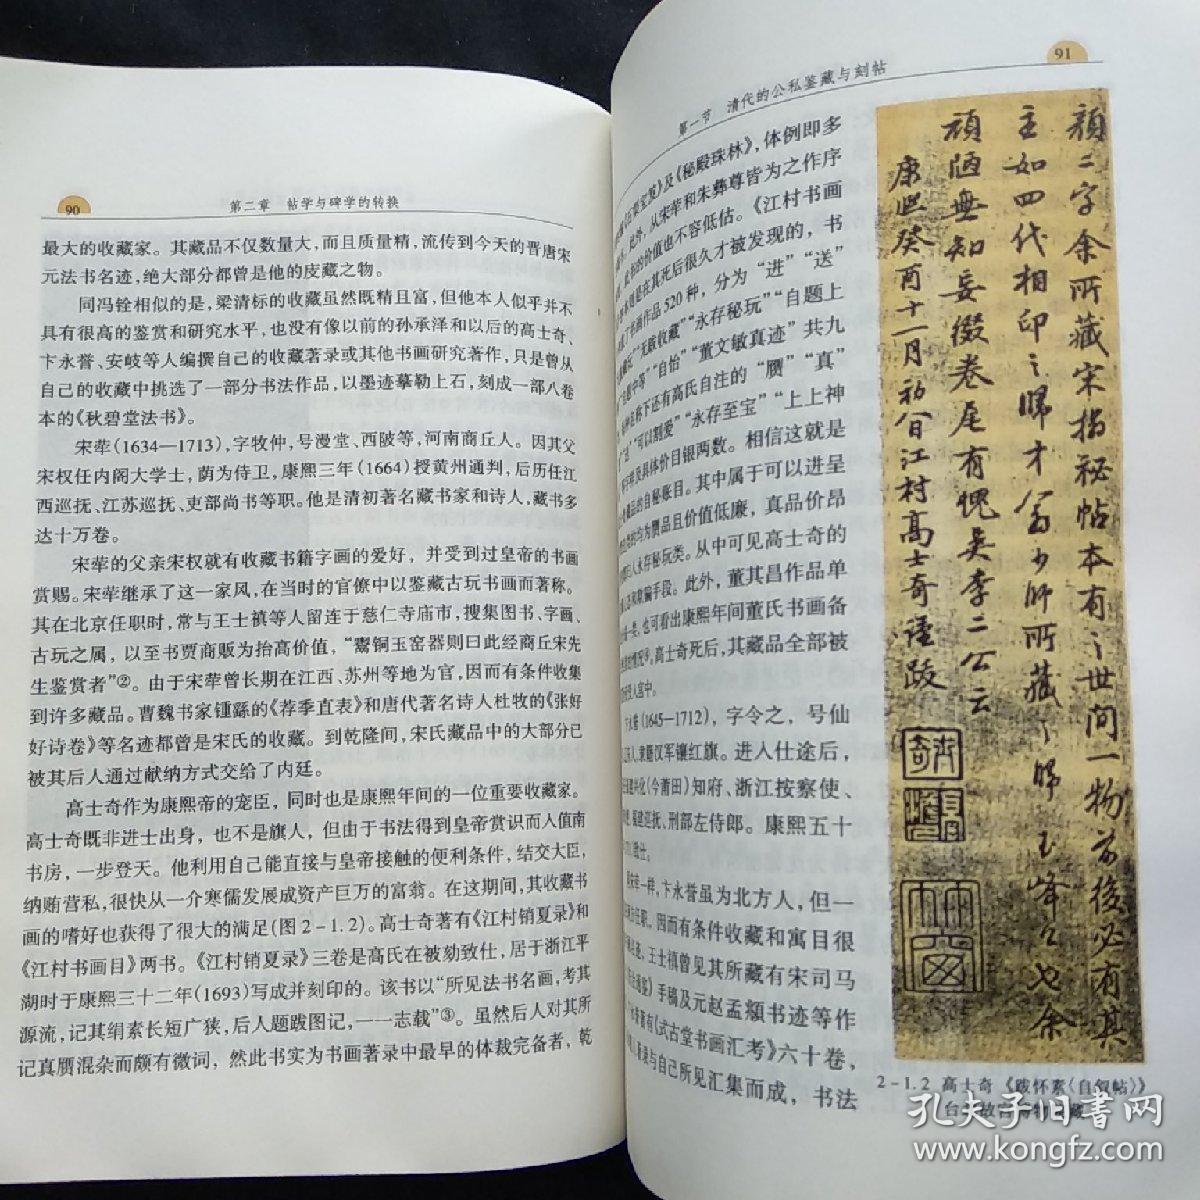 90
第二章 帖学与碑学的转换
最大的收藏家。其藏品不仅数量大，而且质量精，流传到今天的晋唐宋
元法书名迹，绝大部分都曾是他的庋藏之物。
同冯铨相似的是，梁清标的收藏虽然既精且富，但他本人似乎并不
具有很高的鉴赏和研究水平，也没有像以前的孙承泽和以后的高士奇、
卞永誉、安岐等人编撰自己的收藏著录或其他书画研究著作，只是曾从
自己的收藏中挑选了一部分书法作品，以墨迹摹勒上石，刻成一部八卷
本的《秋碧堂法书》。
宋荦(1634—1713)，字牧仲，号漫堂、西陂等，河南商丘人。因其父
宋权任内阁大学士，荫为侍卫，康熙三年(1664)授黄州通判，后历任江
西巡抚、江苏巡抚、吏部尚书等职。他是清初著名藏书家和诗人，藏书多
达十万卷。
宋荦的父亲宋权就有收藏书籍字画的爱好，并受到过皇帝的书画
赏赐。宋荦继承了这一家风，在当时的官僚中以鉴藏古玩书画而著称。
其在北京任职时，常与王士禛等人留连于慈仁寺庙市，搜集图书、字画、
古玩之属，以至书贾商贩为抬高价值，“鬻铜玉窑器则曰此经商丘宋先
生鉴赏者”②。由于宋荦曾长期在江西、苏州等地为官，因而有条件收集
到许多藏品。曹魏书家锺繇的《荐季直表》和唐代著名诗人杜牧的《张好
好诗卷》等名迹都曾是宋氏的收藏。到乾隆间，宋氏藏品中的大部分已
被其后人通过献纳方式交给了内廷。
高士奇作为康熙帝的宠臣，同时也是康熙年间的一位重要收藏家。
高士奇既非进士出身，也不是旗人，但由于书法得到皇帝赏识而入值南
书房，一步登天。他利用自己能直接与皇帝接触的便利条件，结交大臣，
纳贿营私，很快从一介寒儒发展成资产巨万的富翁。在这期间，其收藏书
画的嗜好也获得了很大的满足(图2－1.2)。高士奇著有《江村销夏录》和
《江村书画目》两书。《江村销夏录》三卷是高氏在被劾致仕，居于浙江平
湖时于康熙三十二年(1693)写成并刻印的。该书以“所见法书名画，考其
源流，记其绢素长短广狭，后人题跋图记，一一志载”③。虽然后人对其所
记真赝混杂而颇有微词，然此书实为书画著录中最早的体裁完备者，乾
91
第一节 清代的公私鉴藏与刻帖
及《秘殿珠林》，体例即多
此外，从宋荦和朱彝尊皆为之作序
的价值也不容低估。《江村书画
是在其死后很久才被发现的，书
作品520种，分为“进”“送”
“无跋收藏”“永存秘玩”“自题上
中等”“自怡”“董文敏真迹”共九
下还有高氏自注的“赝”“真”
“可以割爱”“永存至宝”“上上神
及具体价目银两数。相信这就是
的自秘账目。其中属于可以进呈
均为赝品且价值低廉，真品价昂
永存秘玩类。从中可见高士奇的
手段。此外，董其昌作品单
也可看出康熙年间董氏书画备
高士奇死后，其藏品全部被
入宫中。
(1645—1712)，字令之，号仙
隶籍汉军镶红旗。进入仕途后，
(今莆田)知府、浙江按察使、
福建巡抚、刑部左侍郎。康熙五十
一样，卞永誉虽为北方人，但一
因而有条件收藏和寓目很
王士禛曾见其所藏有宋司马
手稿及元赵孟頫书迹等作
有《式古堂书画汇考》六十卷，
与自己所见汇集而成，书法
顏二字余所藏宋搨祕帖本有之世间一物前後必有其
主如四代相印之歸才翁少師所藏之歸玉峰公也余
頑陋無知妄綴卷尾有愧吳李二公云
康熙癸酉十一月初一日江村高士奇謹跋
2－1.2 高士奇 《跋怀素〈自叙帖〉》
台北故宫博物院藏
孔夫子旧书网
www.kongfz.com